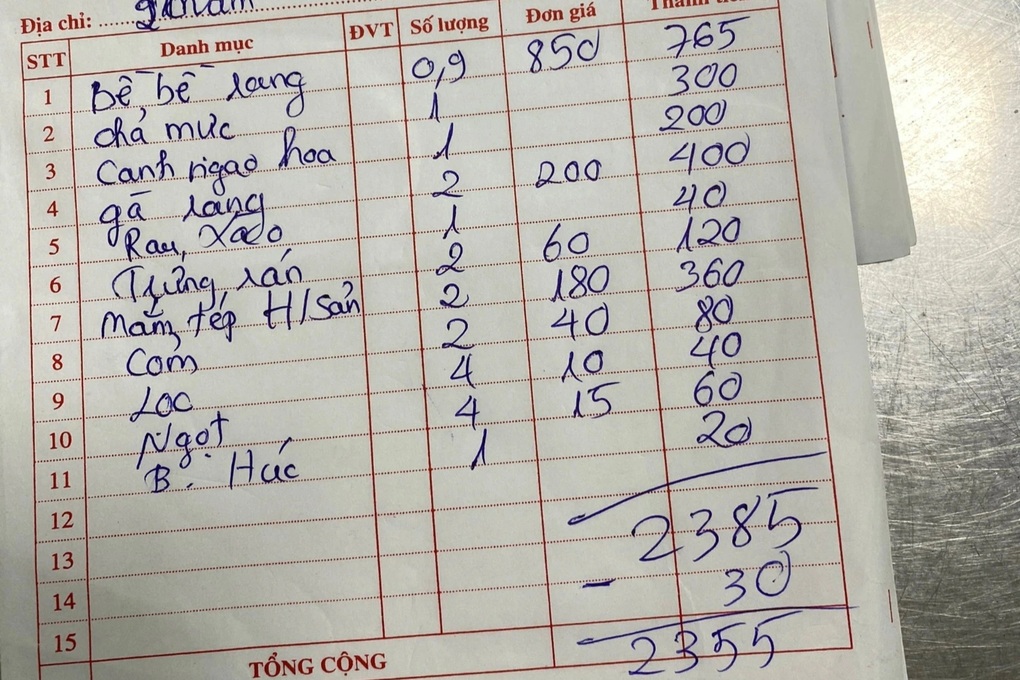 Địa chỉ:
STT Danh mục ĐVT Số lượng Đơn giá
1 Bề bề rang 0,9 850 765
2 chả mực 1 300
3 Canh ngao hoa 1 200
4 gà rang 2 200 400
5 Rau xào 1 40
6 Trứng rán 2 60 120
7 mắm tép H/Sản 2 180 360
8 Cơm 2 40 80
9 Loc 4 10 40
10 Ngọt 4 15 60
11 B. Húc 1 20
12 2385
13
14 - 30
15 2355
TỔNG CỘNG